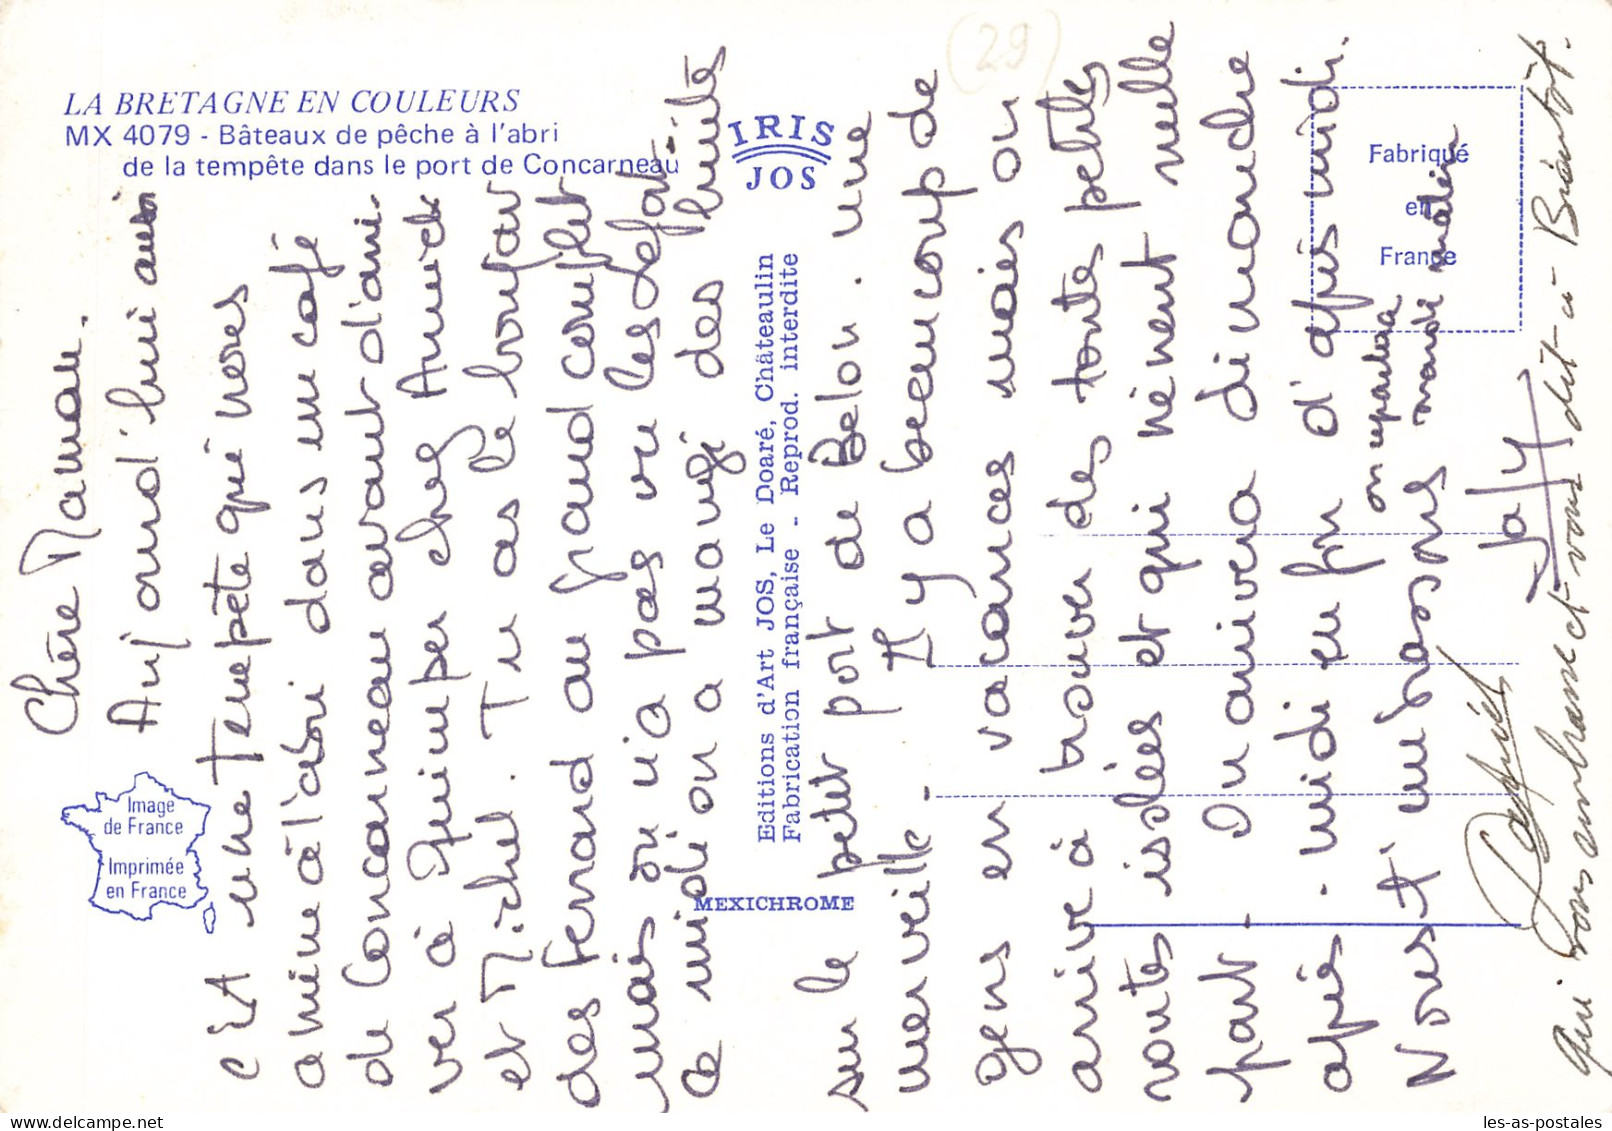 LA BRETAGNE EN COULEURS
MX 4079 - Bâteaux de pêche à l'abri
de la tempête dans le port de Concarneau
IRIS
JOS
(29)
Fabriqué
en
France
Image
de France
Imprimée
en France
Editions d'Art JOS, Le Doaré, Châteaulin
Fabrication française - Reprod. interdite
MEXICHROME
Chère Maman.
Aujourd'hui
c'EA une Tempête qui nous
amène à l'abri dans un café
de Concarneau avant d'arri-
ver à Quimper chez Annick
et Michel. Tu as le bonjour
des Fernand au grand complet
mais on n'a pas vu les defat
Ce midi on a mangé des huitres
sur le petit port de Belon. une
merveille.
Il y a beaucoup de
gens en vacances mais on
arrive à trouver des toutes petites
routes isolées et qui mènent nulle
part. On arrivera dimanche
après-midi en fin d'après midi.
on repartira
mardi matin
Nous t'embrassons
Jay
qui vous embrasse et vous dit à Bientôt.